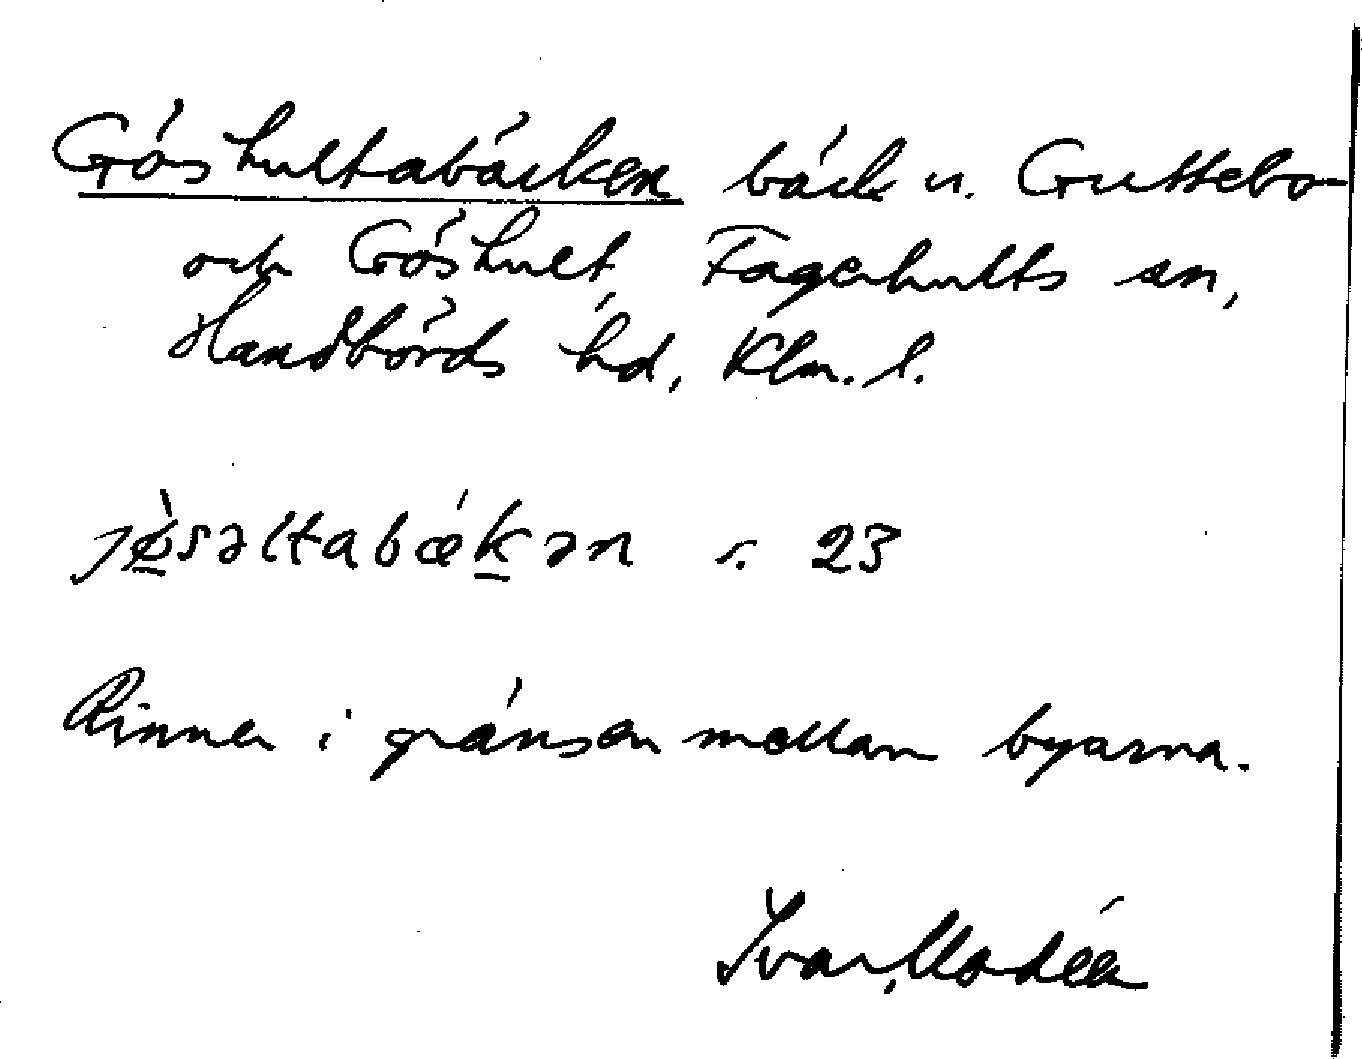 Göshultabäcken bäck u. Guttebo
och Göshult, Fagerhults sn,
Handbörds hd, Klm. l.
jø̀səltabǽkən s. 23
Rinner i gränsen mellan byarna.
Ivar Modéer